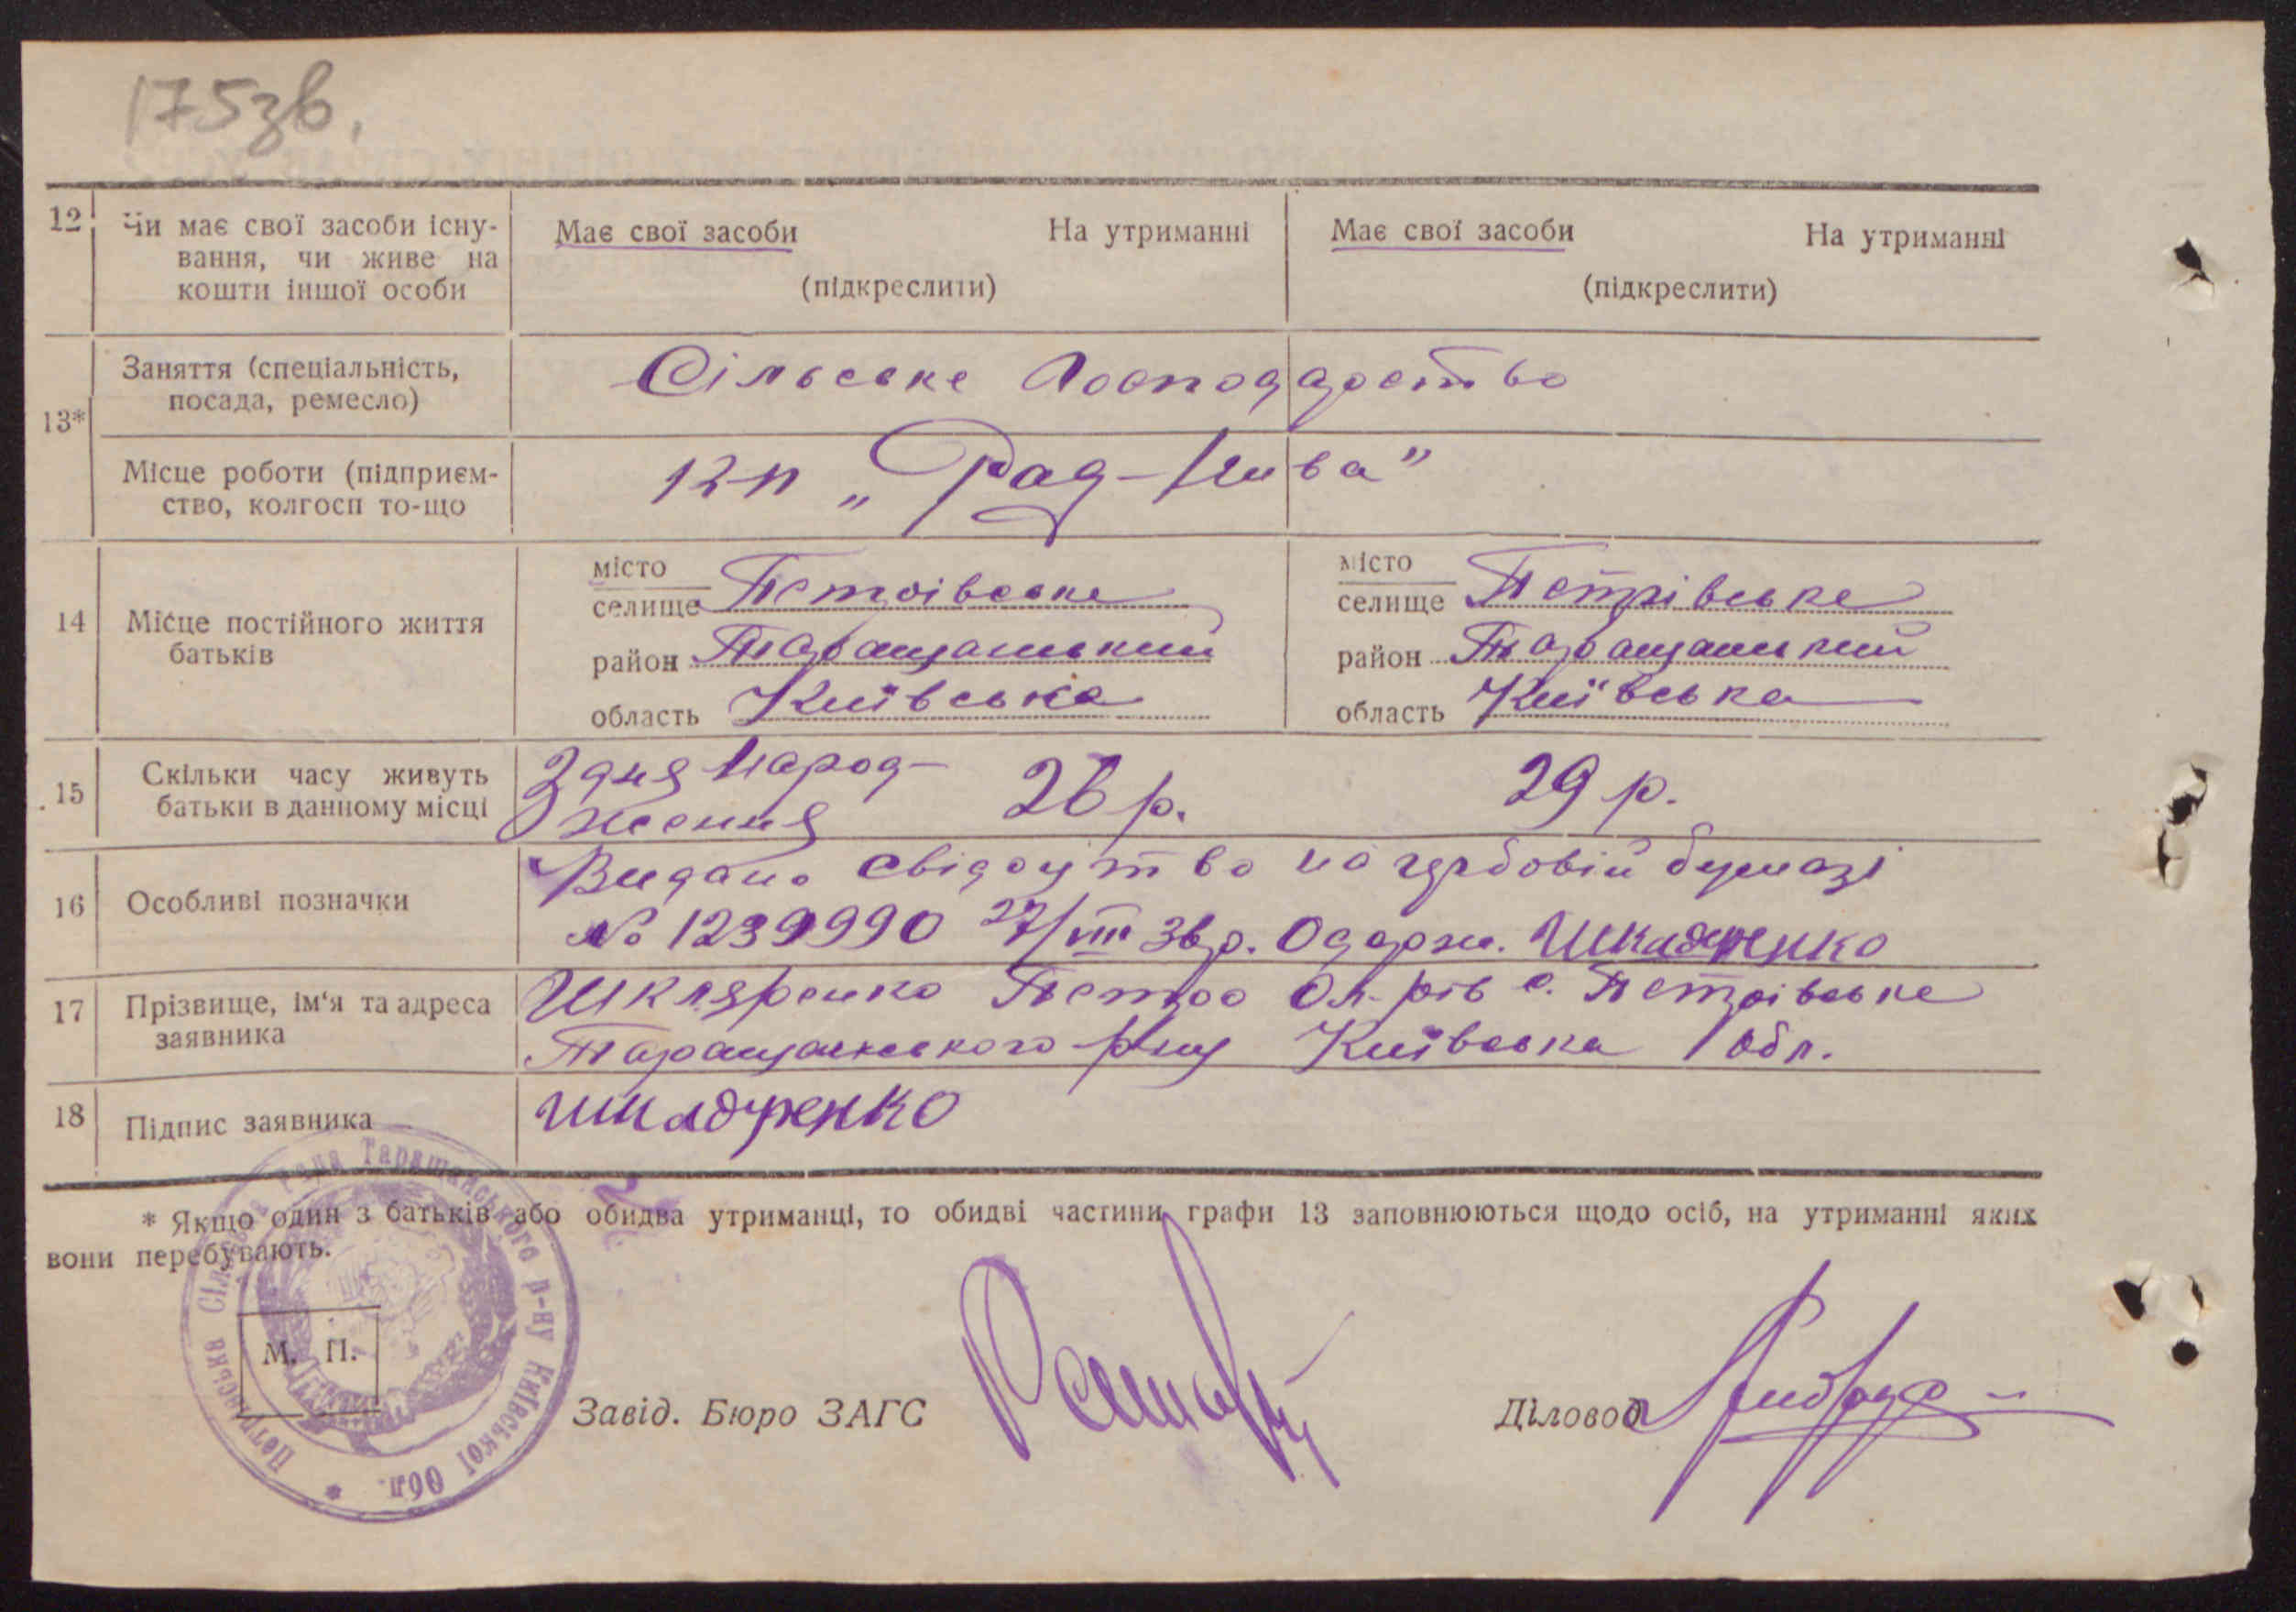 175зв.
12 Чи має свої засоби існу-
вання, чи живе на
кошти іншої особи
Має свої засоби На утриманні
(підкреслити)
Має свої засоби На утриманні
(підкреслити)
13* Заняття (спеціальність,
посада, ремесло)
Сільське Господарство
Місце роботи (підприєм-
ство, колгосп то-що
к-п „Рад-Нива"
14 Місце постійного життя
батьків
місто
селище Петрівське
район Таращанський
область Київська
місто
селище Петрівське
район Таращанський
область Київська
15 Скільки часу живуть
батьки в данному місці
З дня Народ-
ження 26 р. 29 р.
16 Особливі позначки
Видано свідоцтво на гербовій бумазі
№ 1239990 27/VIII 36р. Одерж.
17 Прізвище, ім'я та адреса
заявника
Шкляренко Петро Ол-рів с. Петрівське
Таращанського р-ну Київська обл.
18 Підпис заявника
* Якщо один з батьків або обидва утриманці, то обидві частини графи 13 заповнюються щодо осіб, на утриманні яких
вони перебувають.
М. П.
Завід. Бюро ЗАГС
Діловод
Сільська Рада Таращанського р-ну Київської Обл. *